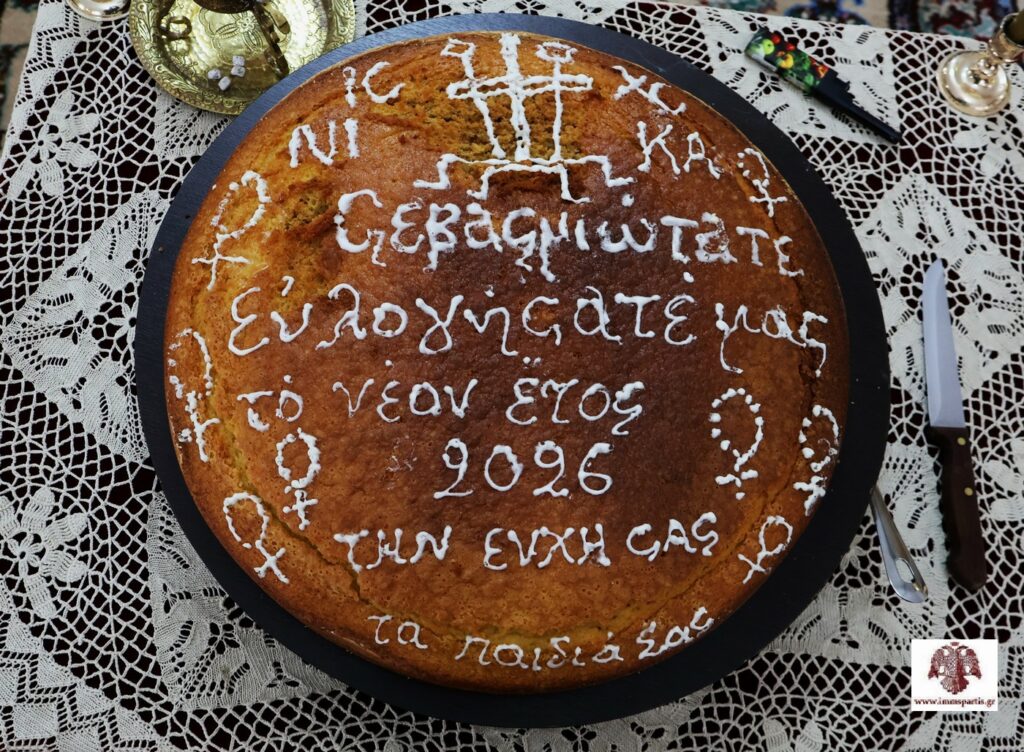 ΙϹ ΧϹ
ΝΙ ΚΑ
Σεβασμιώτατε
Εὐλογήσατέ μας
τὸ νέον ἔτος
2026
ΤΗΝ ΕΥΧΗ ςΑς
τα παιδιά σας
www.immspartis.gr